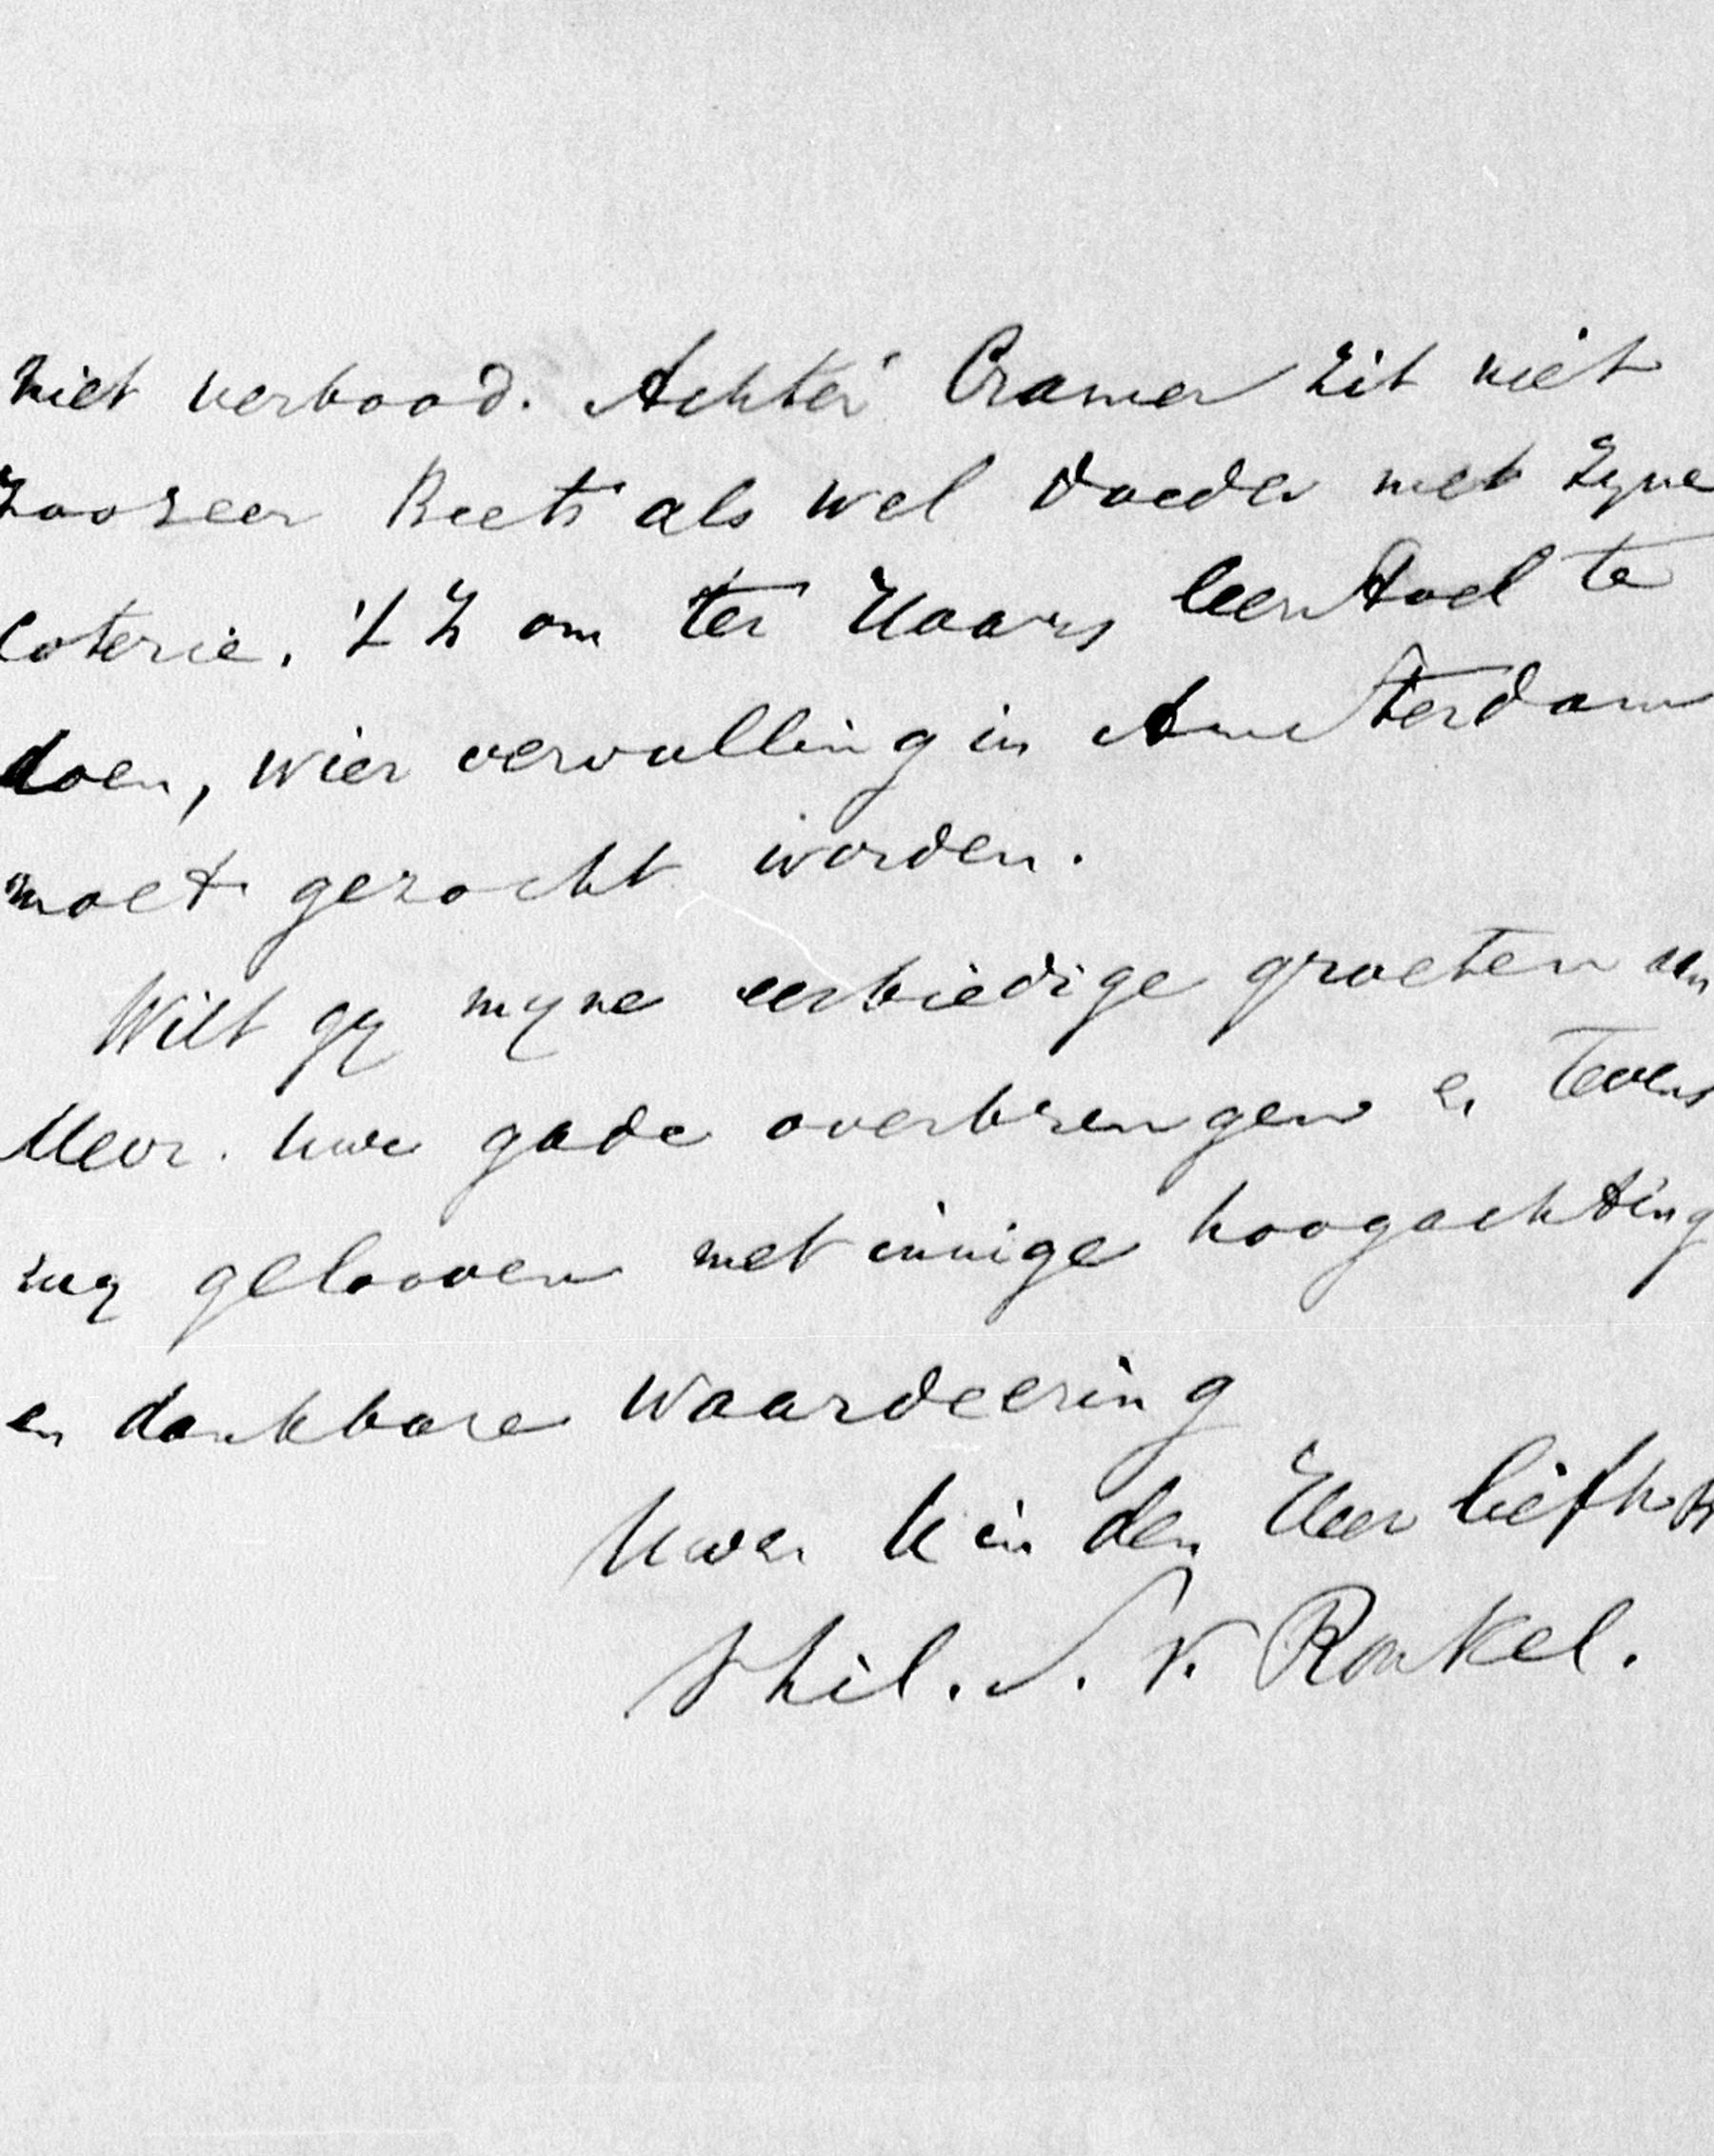 niet verbood. Achter Cramer zit niet
zoozeer Beets als wel Doedes met zyne
coterie. 't Is om ter Haars leerstoel te
doen, wier vervulling in Amsterdam
moet gezocht worden.
Wilt gy myne eerbiedige groeten aan
Mevr. uwe gade overbrengen en tevens
my gelooven met innige hoogachting
en dankbare waardeering
Uwe U in den Heer liefh.
Phil. S. v. Ronkel.